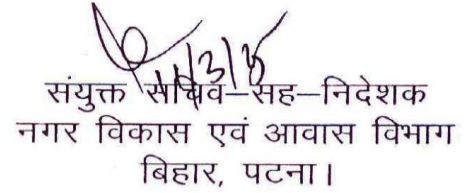 संयुक्त सचिव–सह–निदेशक
नगर विकास एवं आवास विभाग
बिहार, पटना।